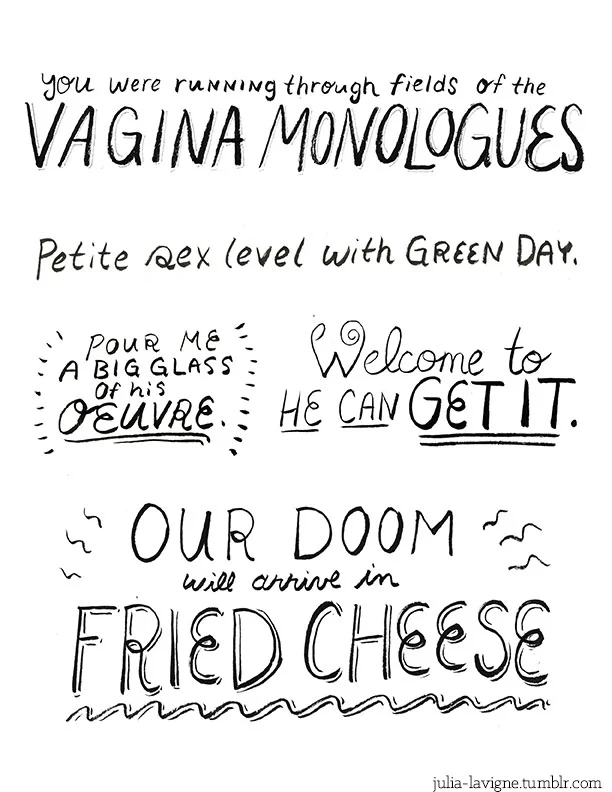 you were running through fields of the
VAGINA MONOLOGUES
Petite sex level with GREEN DAY.
POUR ME
A BIG GLASS
Of his
OEUVRE.
Welcome to
HE CAN GET IT.
OUR DOOM
will arrive in
FRIED CHEESE
julia-lavigne.tumblr.com